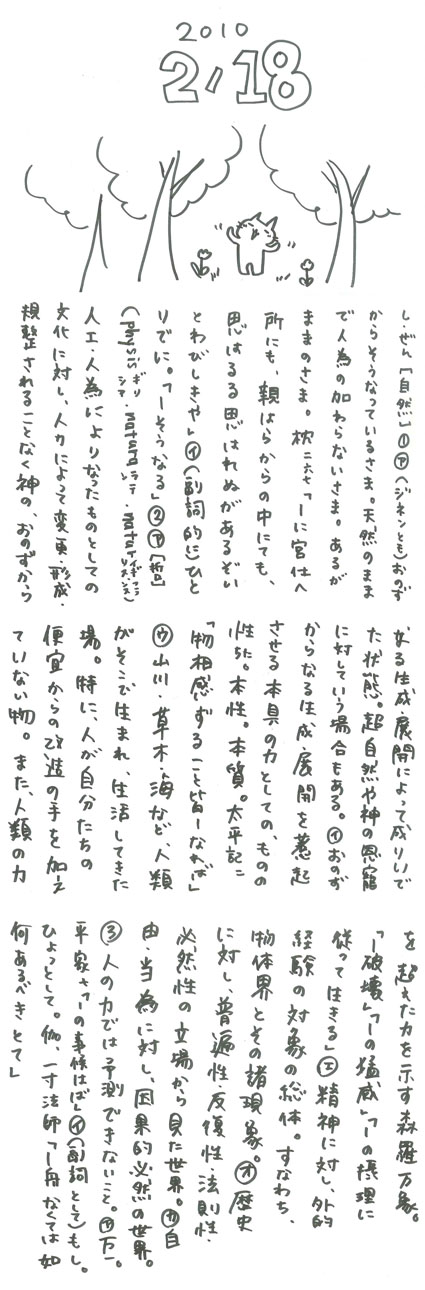 2010
2/18
し‐ぜん【自然】①㋐(ジネンとも)おのず
からそうなっているさま。天然のまま
で人為の加わらないさま。あるが
ままのさま。枕二六七「―に宮仕へ
所にも、親はらからの中にても、
思はるる思はれぬがあるぞい
とわびしきや」㋑(副詞的に)ひと
りでに。「―そうなる」②㋐[哲]
(physisギリシア・naturaラテン・natureイギリス・フランス)
人工・人為によりなったものとしての
文化に対し、人力によって変更・形成・
規整されることなく神の、おのずから
なる生成・展開によって成りいで
た状態。超自然や神の恩寵
に対していう場合もある。㋑おのず
からなる生成・展開を惹起
させる本具の力としての、ものの
性。本性。本質。太平記二
「物相感ずること皆―なれば」
㋒山川・草木・海など、人類
がそこで生まれ、生活してきた
場。特に、人が自分たちの
便宜からの改造の手を加え
ていない物。また、人類の力
を超えた力を示す森羅万象。
「―破壊」「―の猛威」「―の摂理に
従って生きる」㋓精神に対し、外的
経験の対象の総体。すなわち、
物体界とその諸現象。㋔歴史
に対し、普遍性・反復性・法則性・
必然性の立場から見た世界。㋕自
由・当為に対し、因果的必然の世界。
③人の力では予測できないこと。㋐万一。
平家七「―の事候はば」㋑(副詞として)もし。
ひょっとして。伽、一寸法師「―舟なくては如
何あるべきとて」